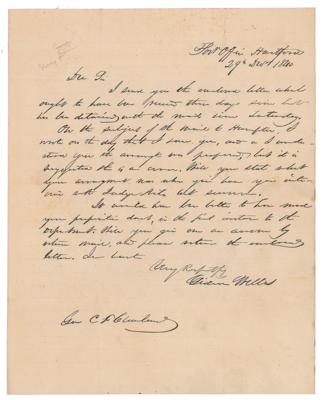 Post Office Hartford
29th Decr 1840
Dear Sir
I send you the enclosed letter which
ought to have been received three days since but
has been detained with the mails since Saturday.
On the subject of the mail to Hampton, I
wrote on the day that I saw you, and as I under-
stood you the arrangt was proposed, but it is
suggested this is an error. Will you state what
your arrangement was when you had your inter-
view with Judge last summer.
It would have been better to have made
your proposition direct, in the first instance to the
department. Will you give me an answer by
return mail, and please return the enclosed
letter.
Very Respcty
Gideon Welles
Gen C F Cleveland